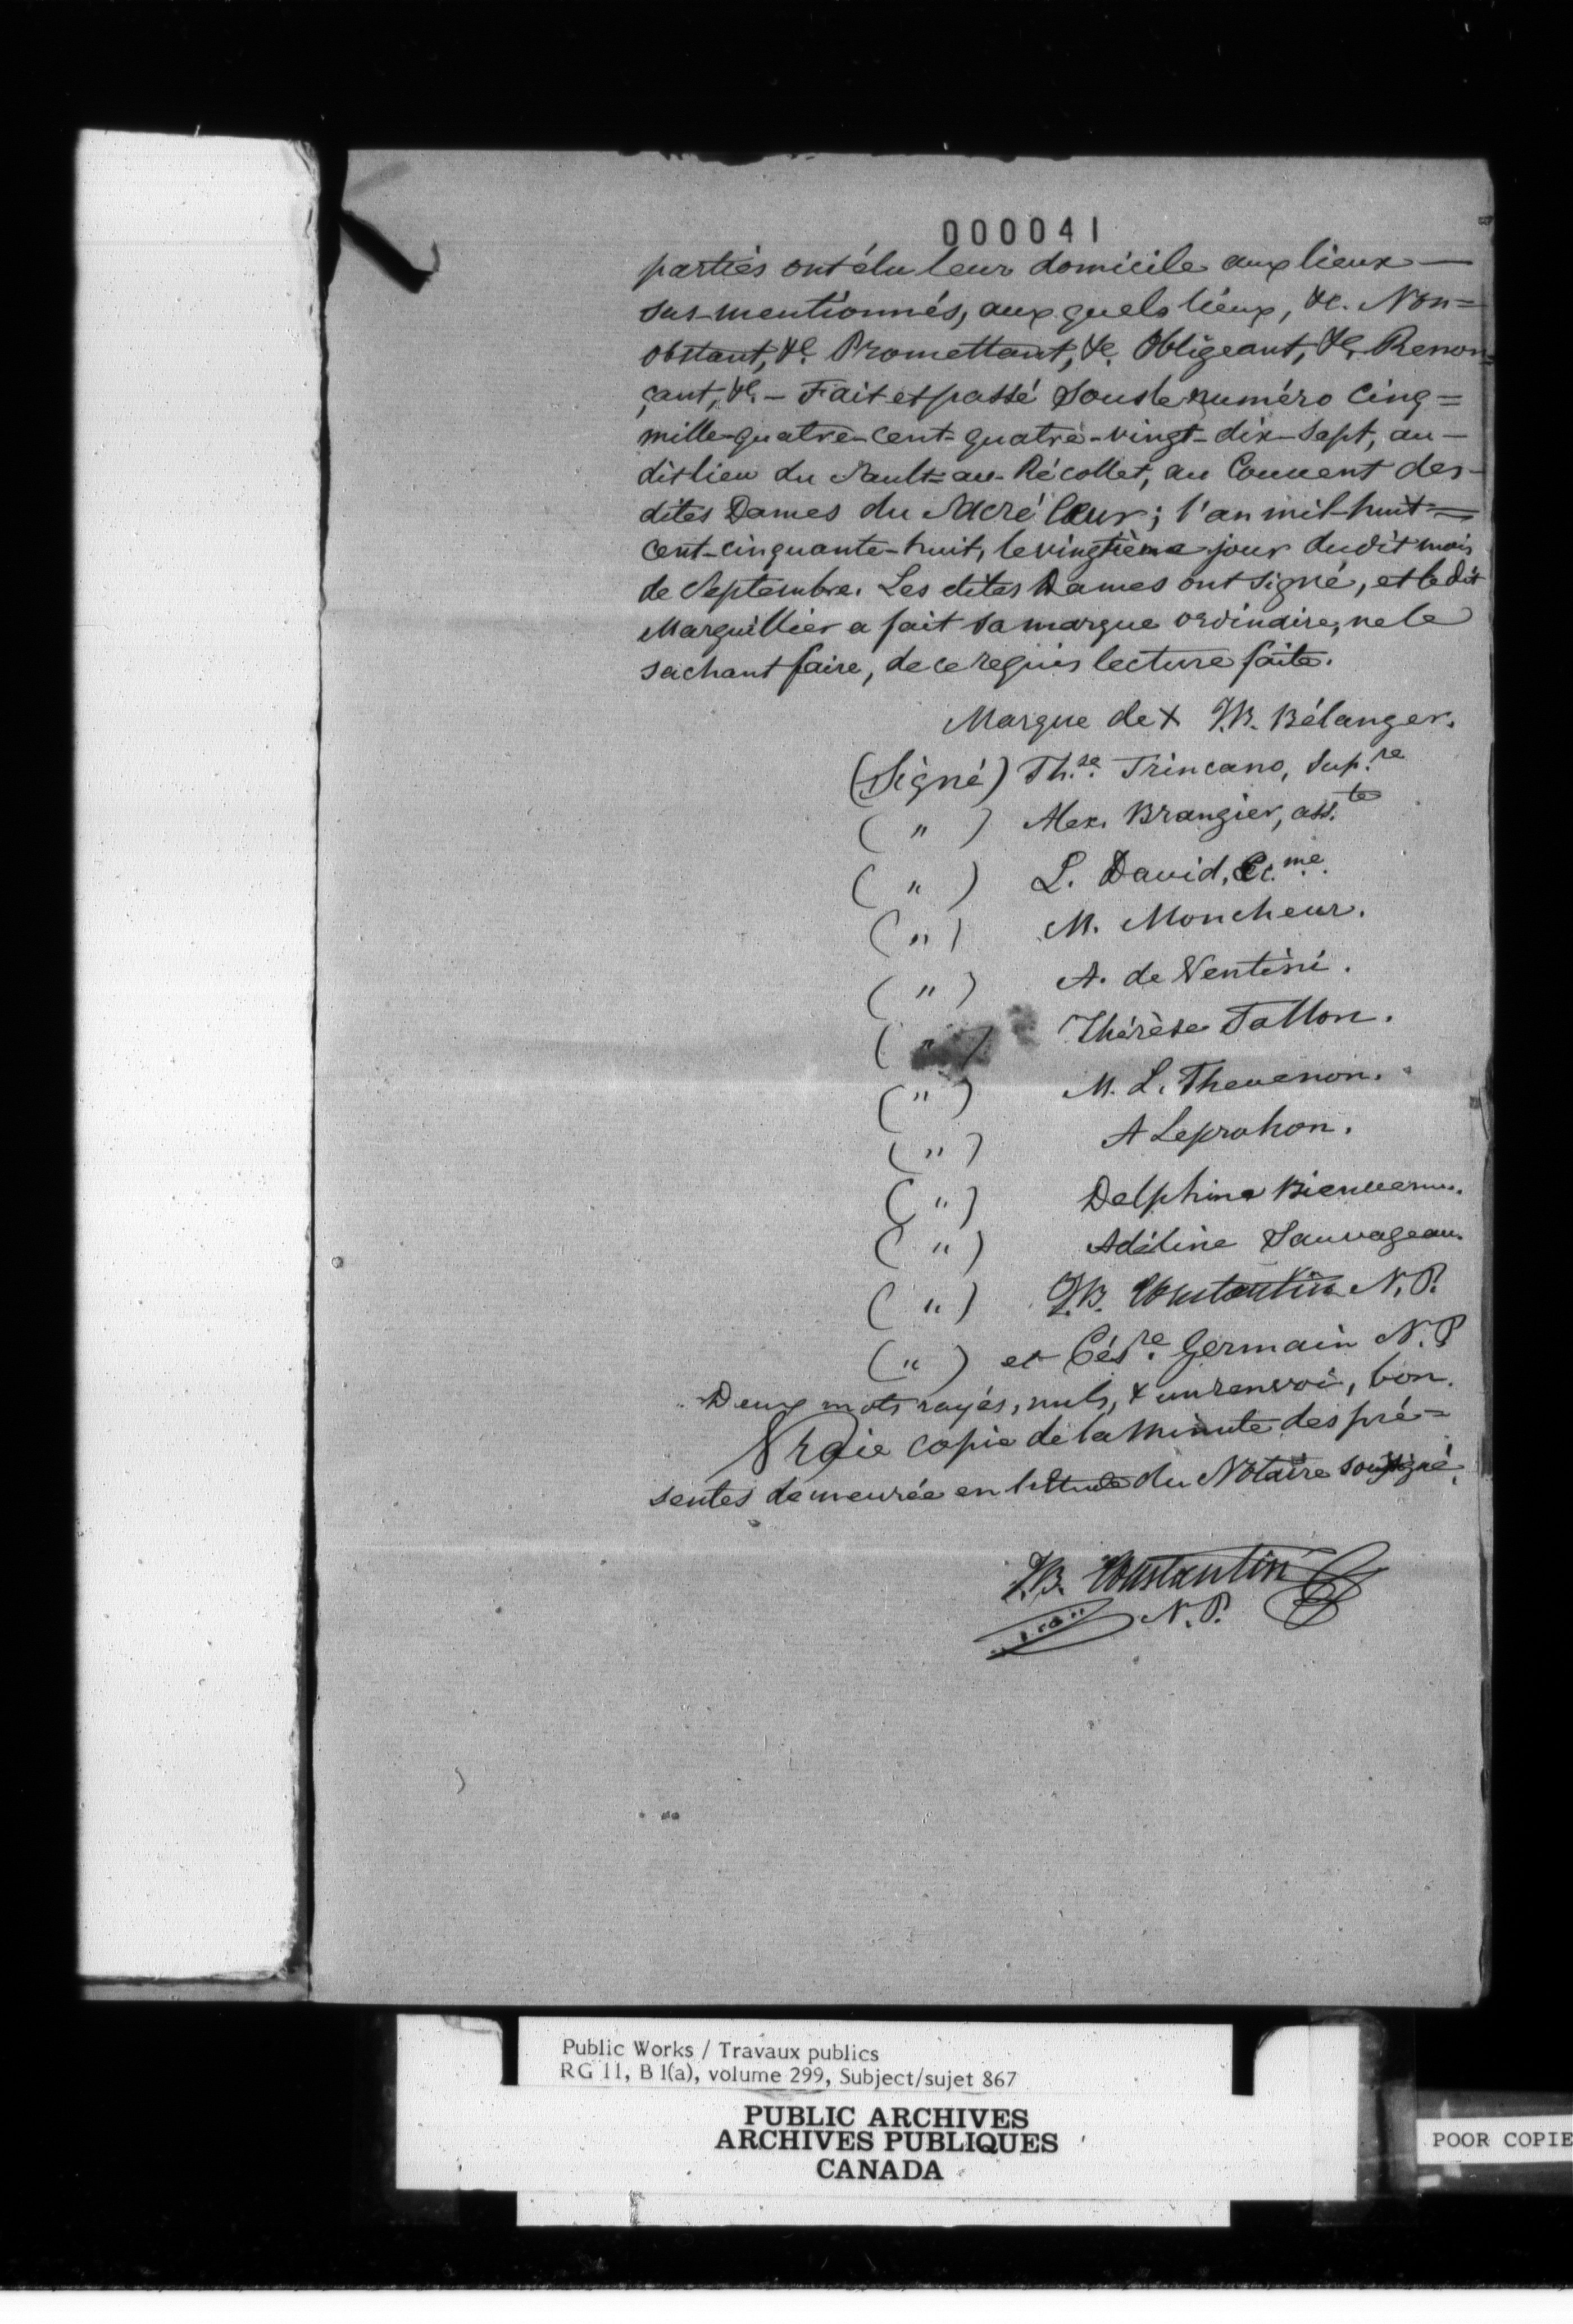 000041
parties ont élu leur domicile aux lieux —
sus-mentionnés, auxquels lieux, &c. Non=
obstant, &c. Promettant, &c. Obligeant, &c. Renon=
çant, &c. — Fait et passé sous le numéro cinq=
mille-quatre-cent-quatre-vingt-dix-sept, au-
dit lieu du Sault-au-Récollet, au Couvent des-
dites Dames du Sacré Cœur; l'an mil-huit=
cent-cinquante-huit, le vingtième jour dudit mois
de Septembre. Les dites Dames ont signé, et le dit
Marguillier a fait sa marque ordinaire, ne le
sachant faire, de ce requis lecture faite.
Marque de X J.B. Bélanger.
(Signé) Th.se Trincano, Sup.re
( " ) Alex. Brangier, ass.te
( " ) L. David, Ec.me.
( " ) M. Moncheur.
( " ) A. de Ventini.
( " ) Thérèse Tallon.
( " ) M. L. Thevenon.
( " ) A Leprohon.
( " ) Delphine Bienvenu.
( " ) Adéline Sauvageau.
( " ) J.B. Constantin N.P.
( " ) et Cés.re Germain N.P.
Deux mots rayés, nuls, & un renvoi, bon.
Vraie copie de la minute des pré=
sentes demeurée en l'Etude du Notaire soussigné.
J.B. Constantin
N.P.
Public Works / Travaux publics
RG 11, B 1(a), volume 299, Subject/sujet 867
PUBLIC ARCHIVES
ARCHIVES PUBLIQUES
CANADA
POOR COPIE